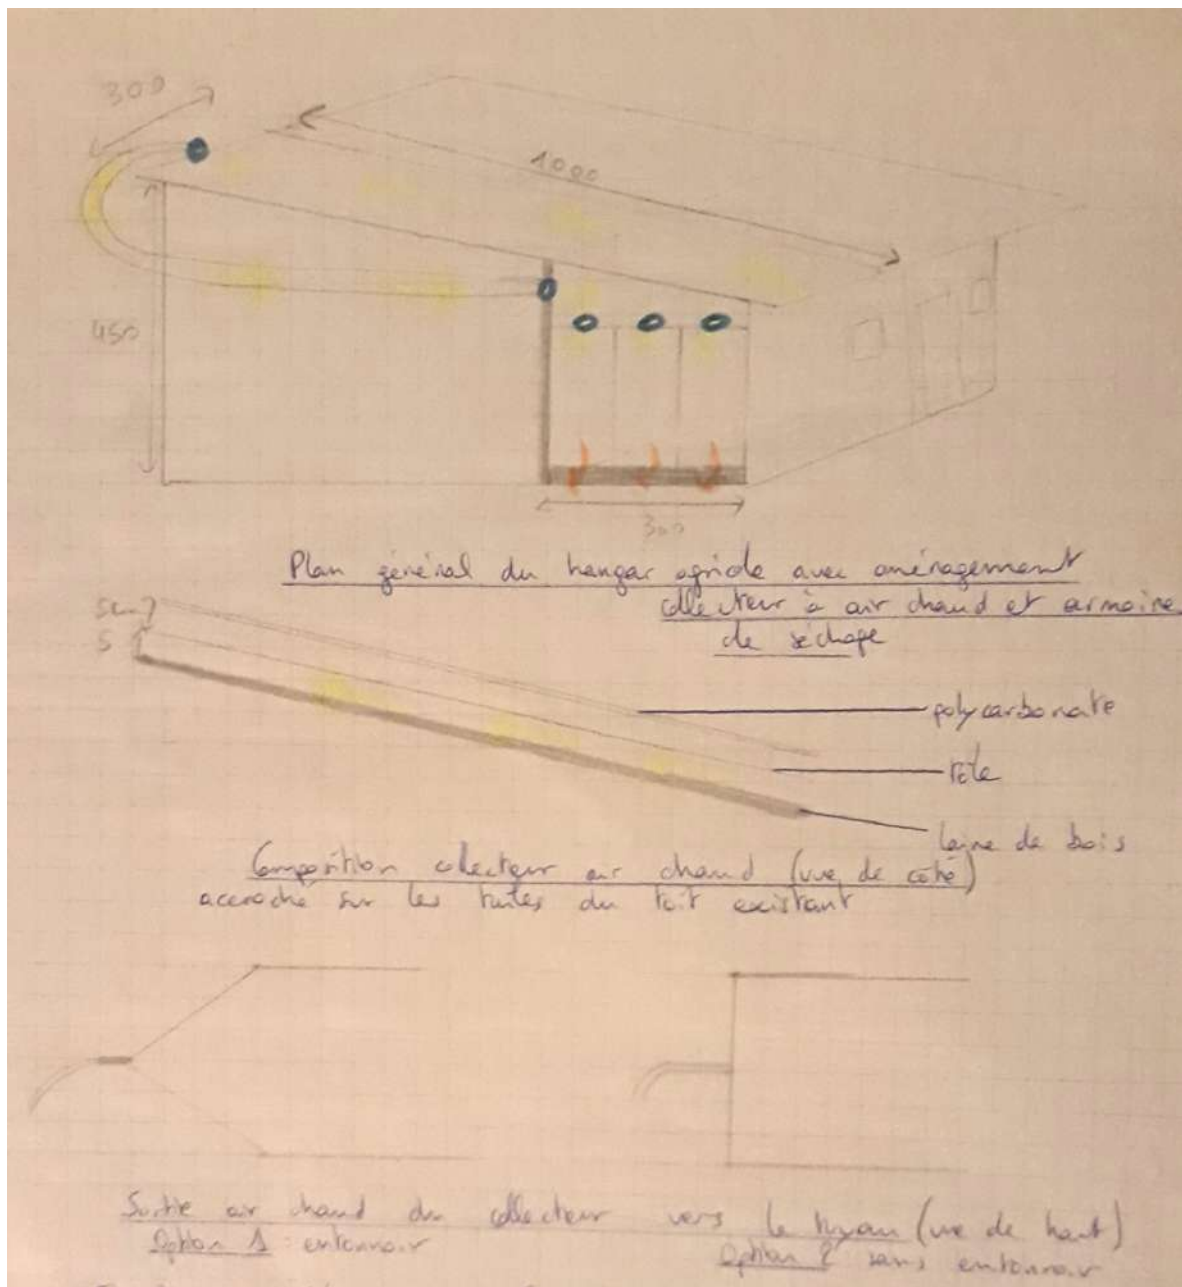 300
1000
450
300
Plan général du hangar agricole avec aménagement
collecteur à air chaud et armoire
de séchage
5cm
5
polycarbonate
tôle
laine de bois
Composition collecteur air chaud (vue de côté)
accroché sur les tuiles du toit existant
Sortie air chaud du collecteur vers le tuyau (vue de haut)
Option 1 : entonnoir
Option 2 sans entonnoir